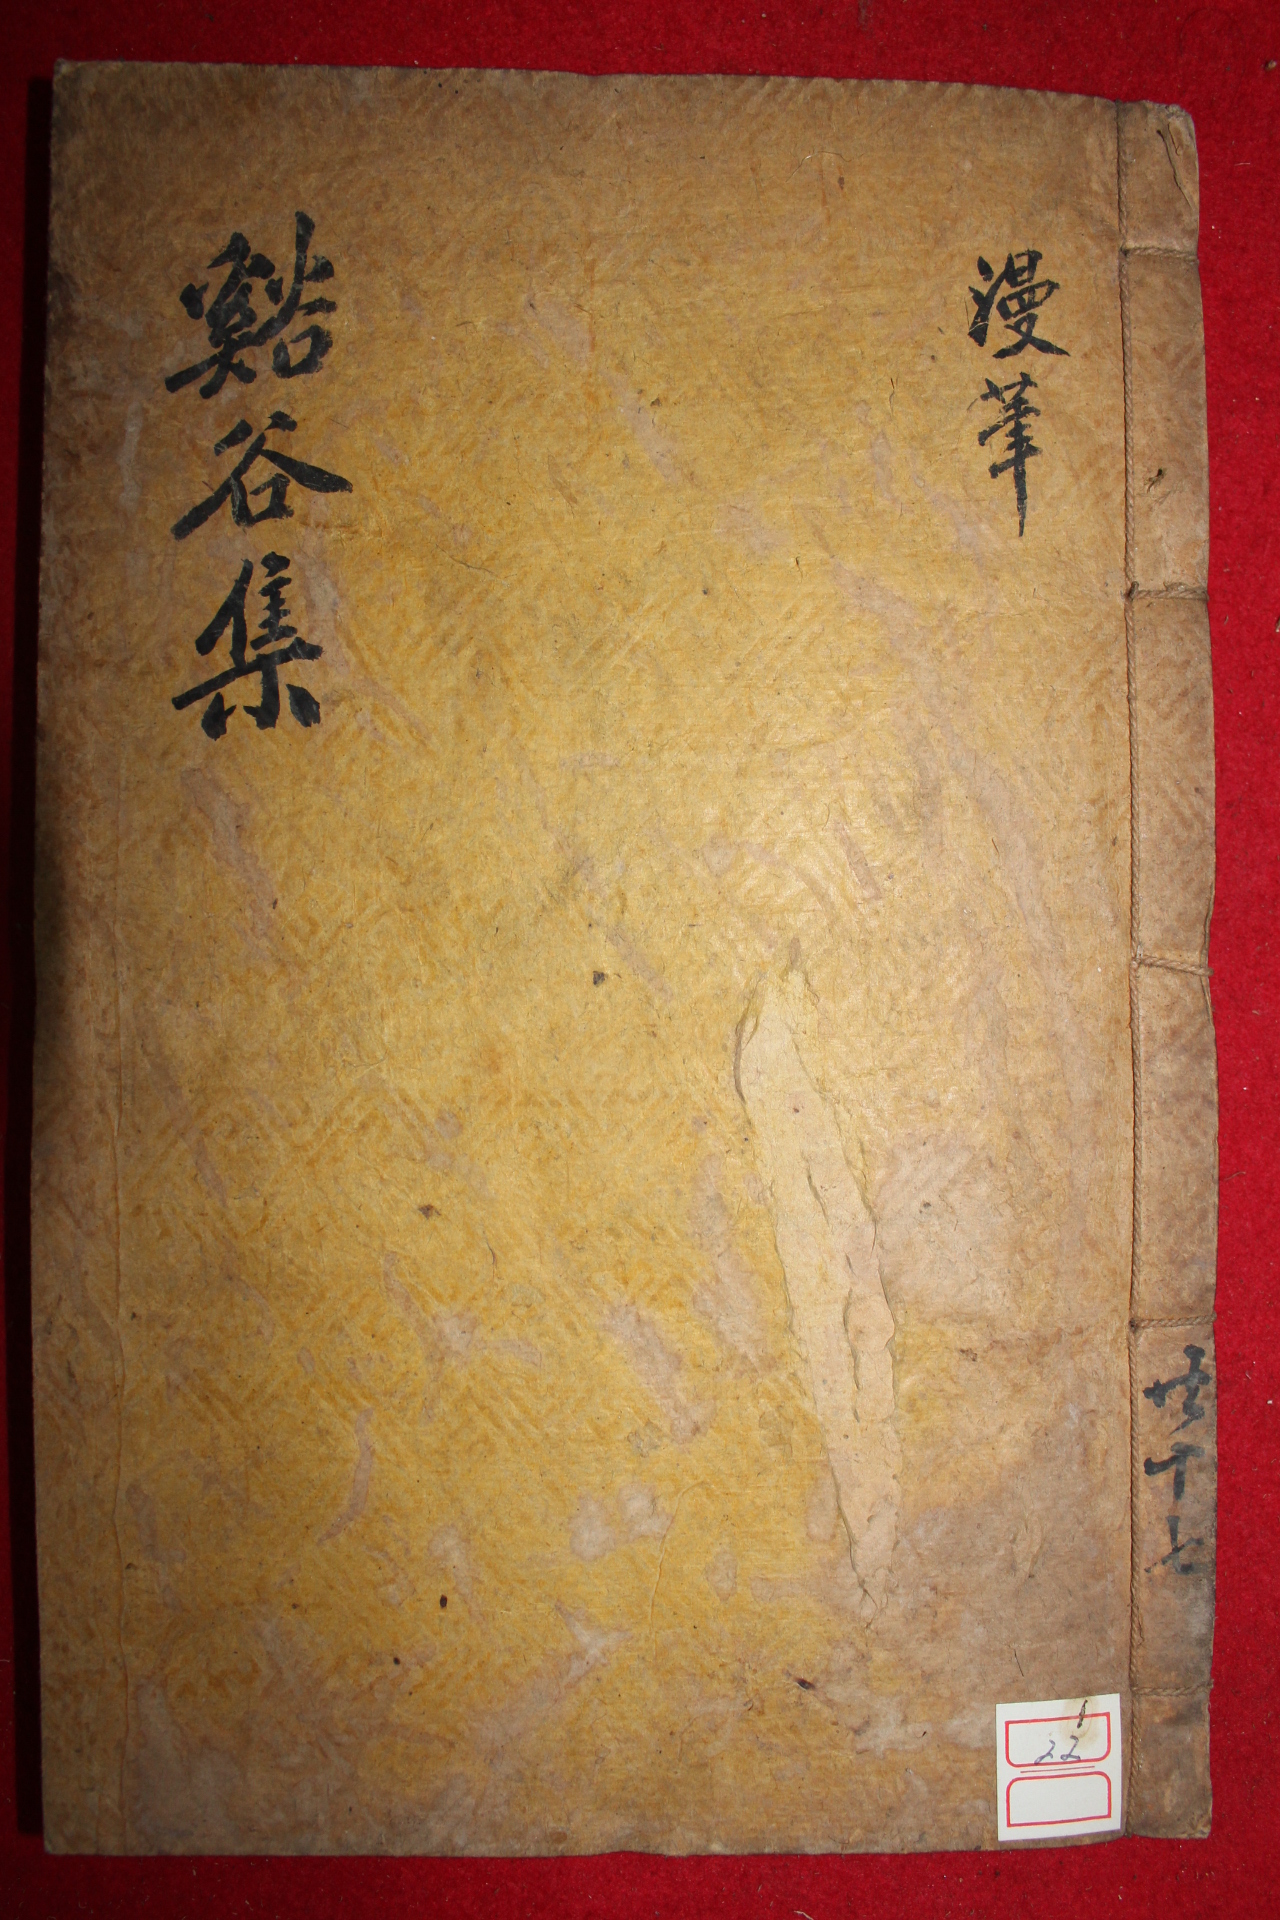 谿谷集
漫筆
共十七
22